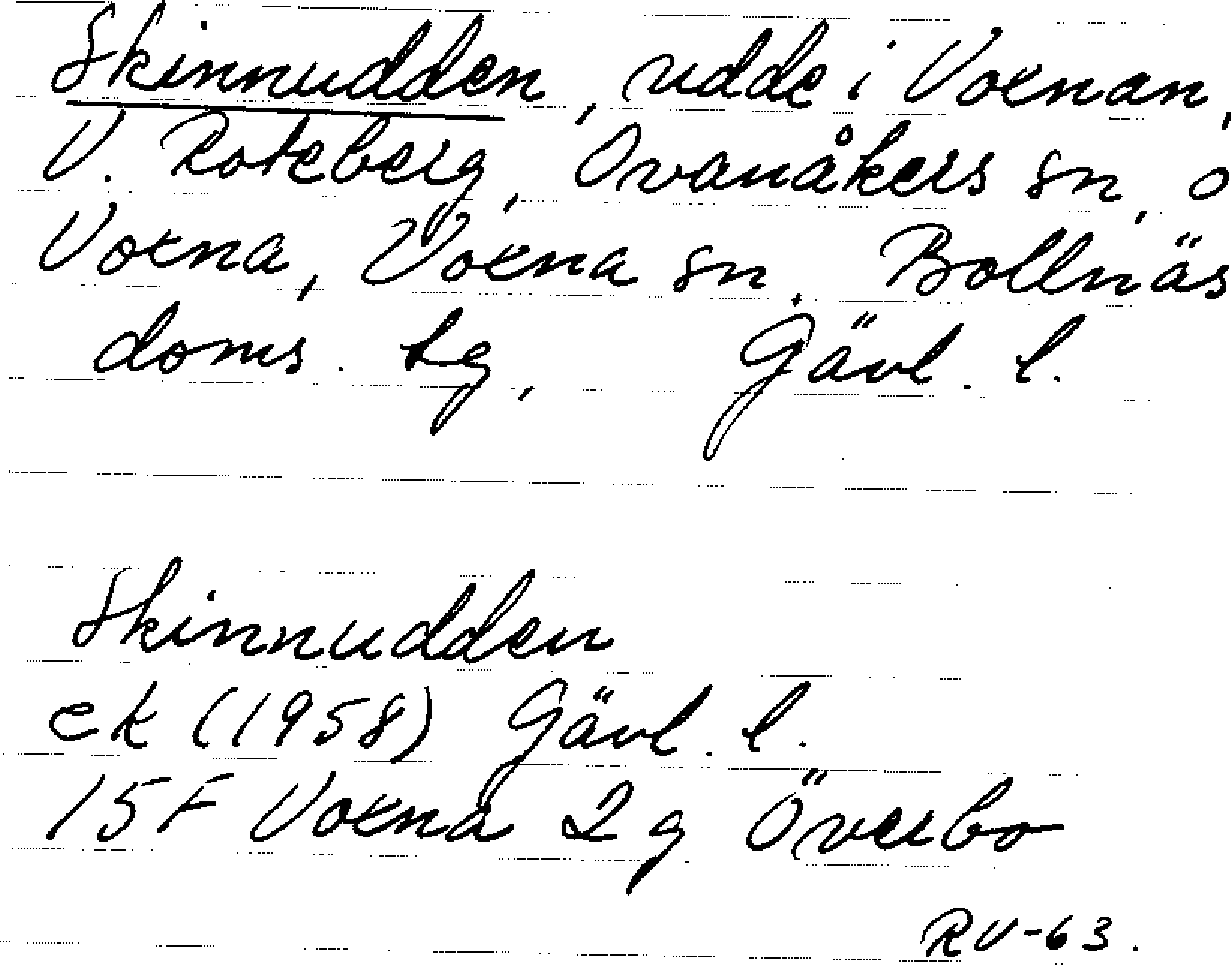 Skinnudden, udde i Voxnan,
V. Roteberg, Ovanåkers sn, o
Voxna, Voxna sn. Bollnäs
doms. tg, Gävl. l.
Skinnudden
ek (1958) Gävl. l.
15F Voxna 2g Överbo
RV-63.